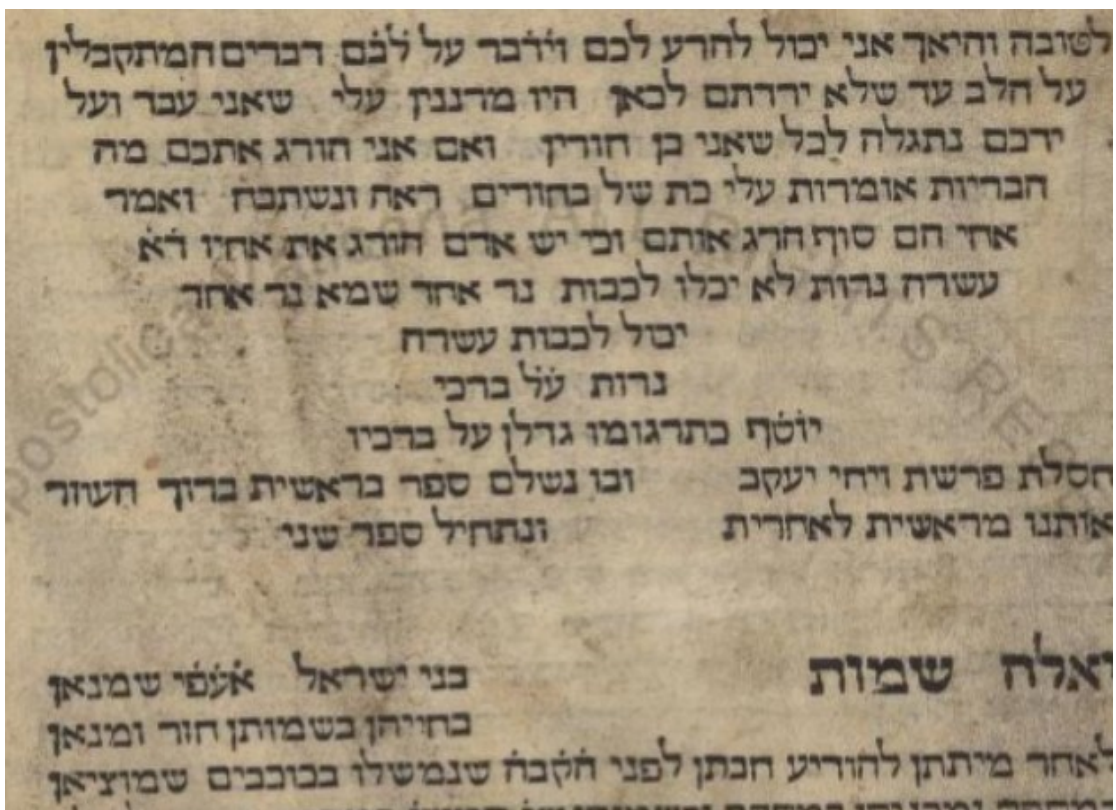 לטובה והיאך אני יכול להרע לכם וידבר על לבם דברים המתקבלין
על הלב עד שלא ירדתם לכאן היו מרננין עלי שאני עבד ועל
ידכם נתגלה לכל שאני בן חורין ואם אני הורג אתכם מה
הבריות אומרות עלי כת של בחורים ראה ונשתבח ואמר
אחי הם סוף הרג אותם וכי יש אדם הורג את אחיו דא
עשרה נרות לא יכלו לכבות נר אחד שמא נר אחד
יכול לכבות עשרה
נרות על ברכי
יוסף כתרגומו גדלן על ברכיו
חסלת פרשת ויחי יעקב ובו נשלם ספר בראשית ברוך העוזר
אותנו מראשית לאחרית ונתחיל ספר שני
ואלה שמות בני ישראל אעפי שמנאן
בחייהן בשמותן חזר ומנאן
לאחר מיתתן להודיע חבתן לפני הקבה שנמשלו בכוכבים שמוציאן